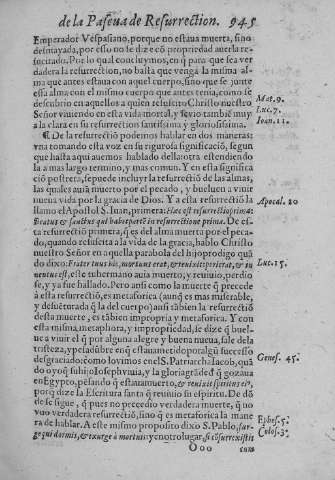 de la Pascua de Resurrection. 945
Emperador Vespasiano, porque no estaua muerta, sino
desmayada, por esso no se dize cō propriedad auerla re-
sucitado. Por lo qual concluymos, en q̄ para que sea ver
dadera la resurrectiō, no basta que venga la misma al-
ma que antes estaua con aquel cuerpo, sino que se junte
essa alma con el mismo cuerpo que antes tenia, como se
descubrio en aquellos a quien resuscito Christo nuestro
Señor viuiendo en esta vida mortal, y se vio tambiē muy
a la clara en su resurrection santissima y gloriosissima.
Mat. 9.
Luc. 7.
Ioan. 11.
¶ De la resurrectiō podemos hablar en dos maneras:
vna tomando esta voz en su rigurosa significació, segun
que hasta aqui auemos hablado della: otra estendiendo
la a mas largo termino, y mas comun. Y en esta significa
ciō postrera, se puede incluyr la resurrectiō de las almas,
las quales auiā muerto por el pecado, y bueluen a viuir
nueua vida por la gracia de Dios. Y a esta resurrectiō la
llamo el Apostol S. Iuan, primera: Hæc est resurrectio prima:
Beatus & sanctus qui habet partē in resurrectione prima. De es-
ta resurrectiō primera, q̄ es del alma muerta por el peca-
do, quando resuscita a la vida de la gracia, hablo Christo
nuestro Señor en aquella parabola del hijo prodigo quā
do dixo: Frater tuus hic, mortuus erat, & reuixit: perierat, & in
uentus est, este tu hermano auia muerto, y reuiuio, perdio
se, y ya fue hallado. Pero ansi como la muerte q̄ precede
à esta resurrectiō, es metaforica (aunq̄ es mas miserable,
y desuēturada q̄ la del cuerpo) ansi tābien la resurrectiō
desta muerte, es tābien impropria y metaforica. Y con
esta misma metaphora, y impropriedad, se dize q̄ buel-
ue a viuir el q̄ por alguna alegre y buena nueua, sale dela
tristeza, y pesadūbre en q̄ estaua metido por algū successo
desgraciado: como lo vimos en el S. Patriarcha Iacob, quā
do oyo q̄ su hijo Ioseph viuia, y la gloria y grādeza q̄ gozaua
en Egypto, pēsando q̄ estaria muerto, & reuixit spiritus ei',
porq̄ dize la Escritura santa q̄ reuiuio su espiritu. De dō
de se sigue, q̄ pues no precedio verdadera muerte, q̄ no
vuo verdadera resurrectiō, sino q̄ es metaforica la mane
ra de hablar. A este mismo proposito dixo S. Pablo, sur-
ge qui dormis, & exurge à mortuis: y en otro lugar, si cōsurrexistis
Apocal. 20
Luc. 15.
Genes. 45.
Ephes. 5.
Colos. 3.
Ooo
cum